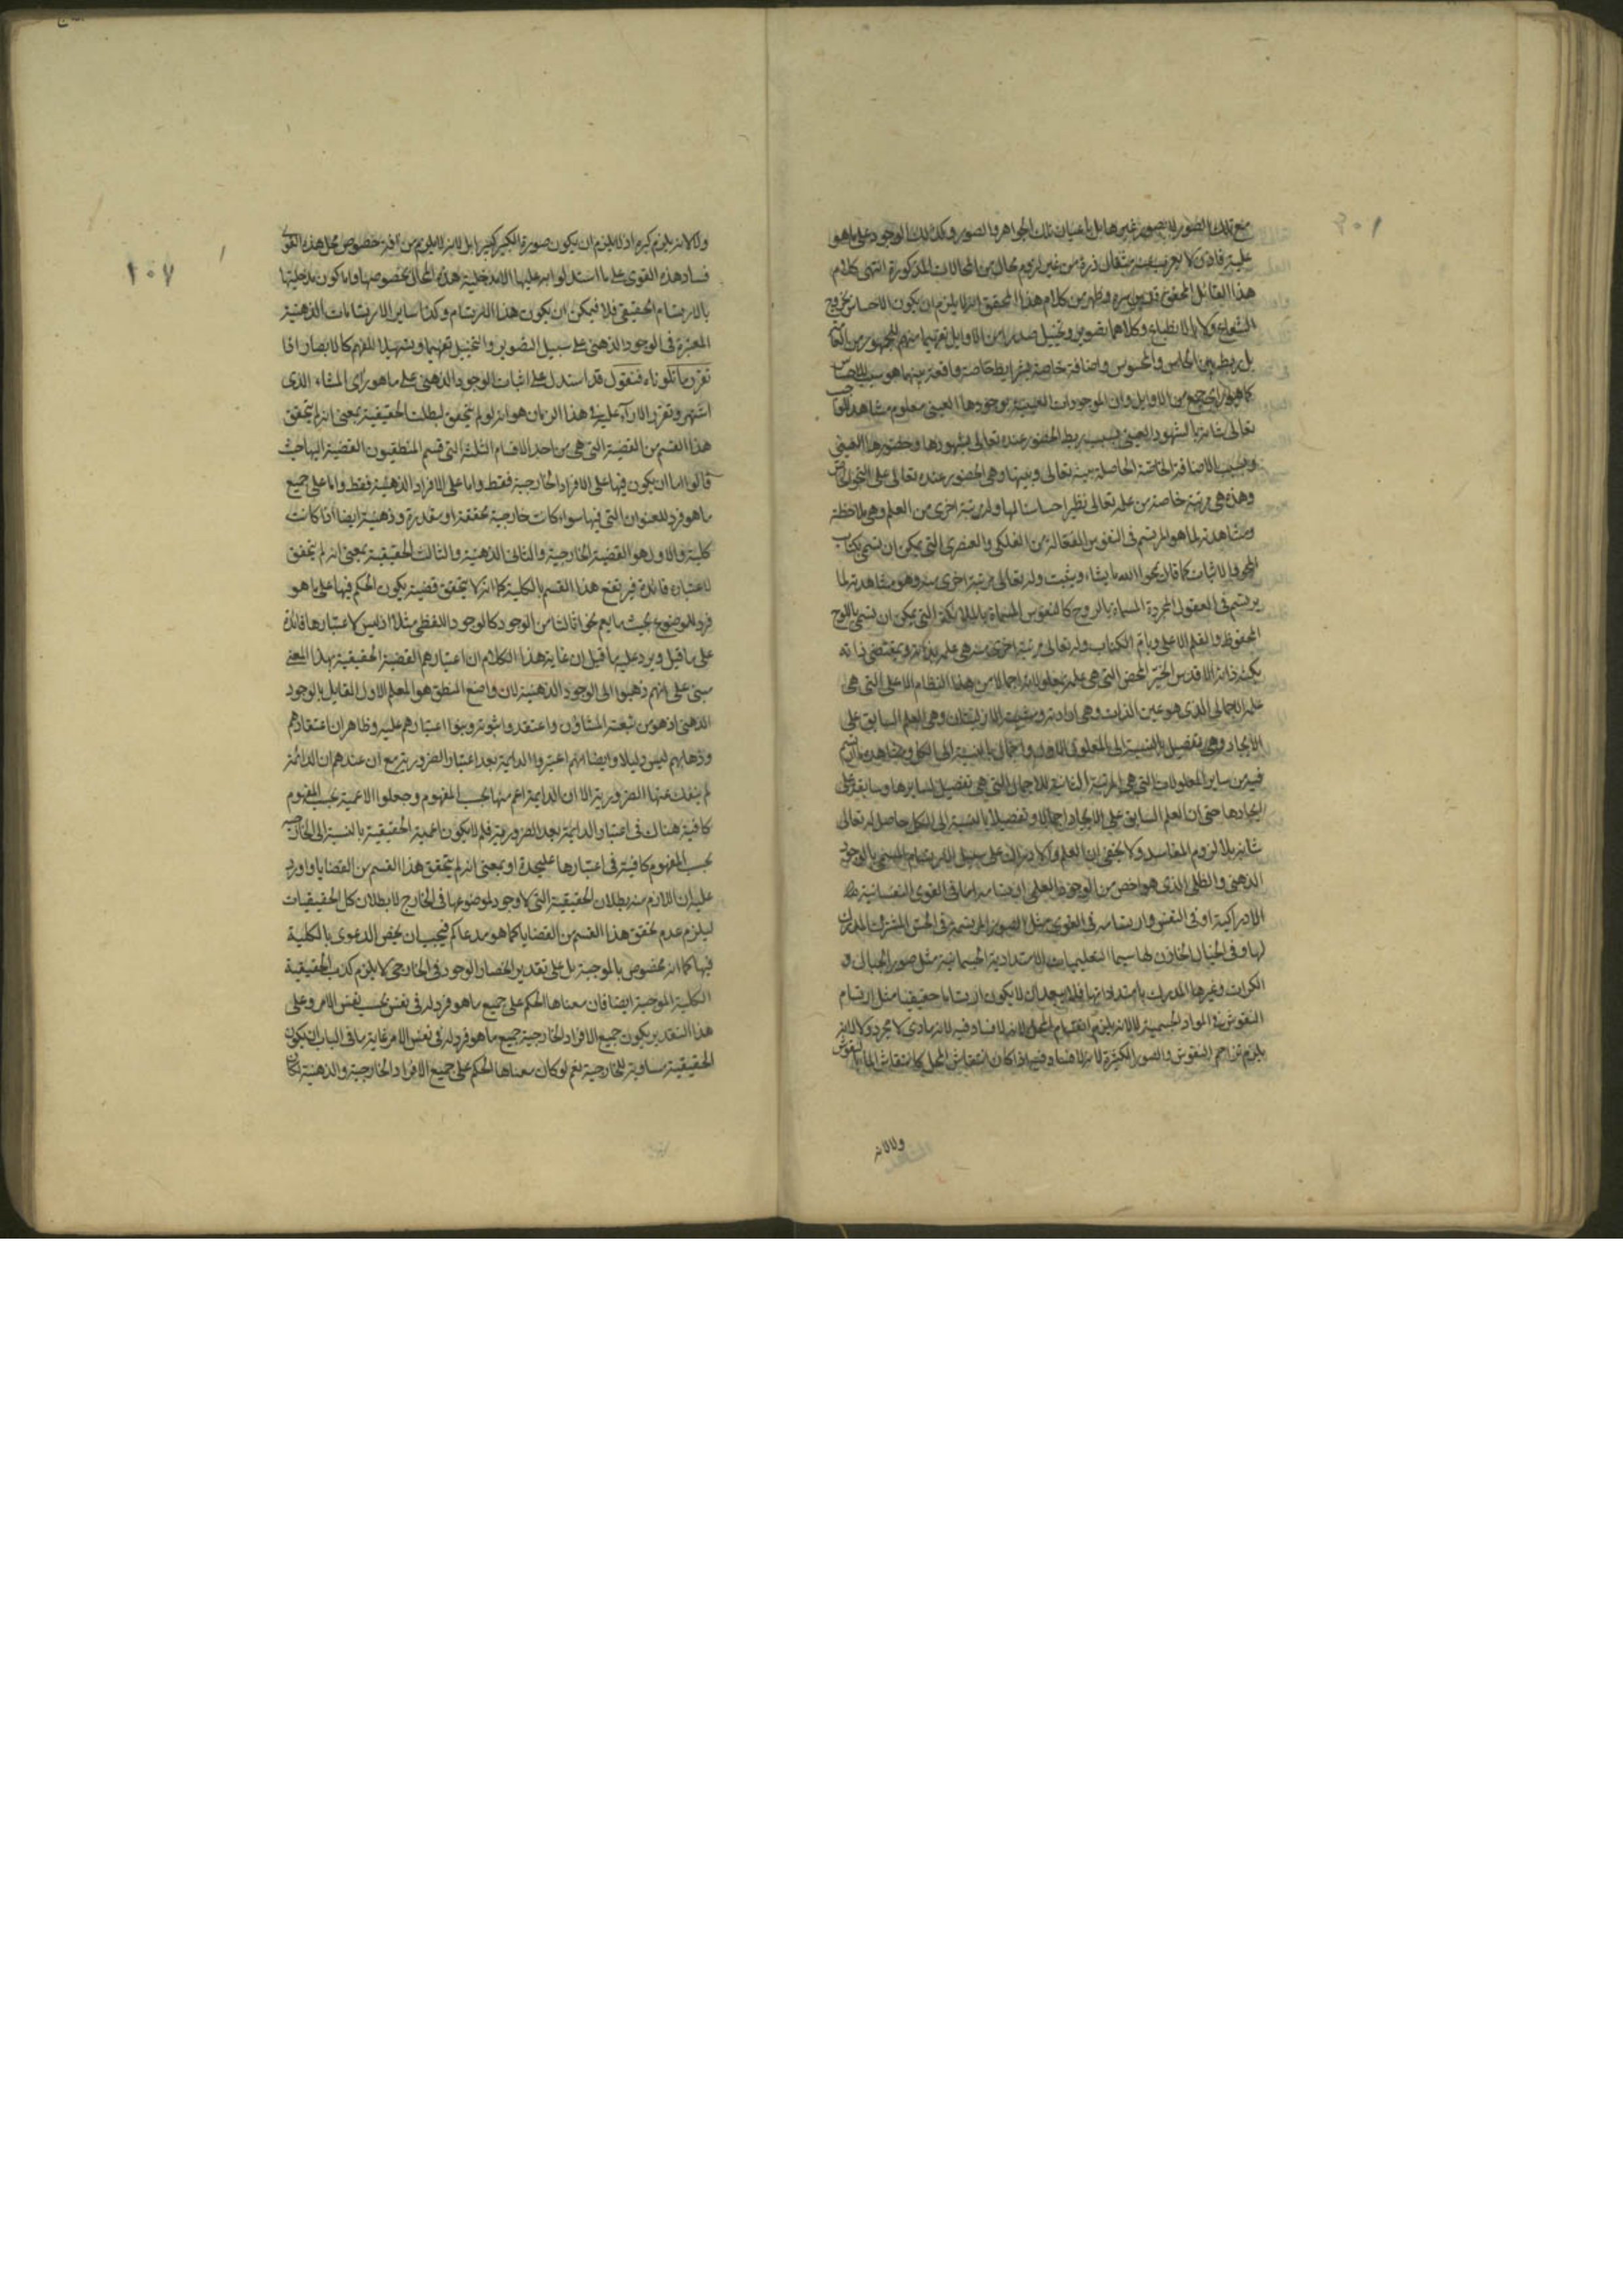 مع تلك الصور لا بصور غيرها بل باعيان تلك الجواهر والصور وكذلك الوجود على ما هو
عليه فاذن لا يعزب عنه مثقال ذرة من غير لزوم محال من المحالات المذكورة انتهى كلام
هذا القائل المحقق قدس سره وظهر من كلام هذا المحقق انه لا يلزم ان يكون الاحساس بخروج
الشعاع ولا بالانطباع وكلاهما تصوير وتخييل صدرا من الاوايل تفهيما منهم للجمهور من
بل ربط بين الحاس والمحسوس واضافة خاصة بشرايط خاصة واقعة بينهما هو سبب للاحساس
كما هو راى جمع من الاوايل وان الموجودات العينية بوجودها العينى معلوم مشاهد للواجب
تعالى شانه بالشهود العينى بسبب ربط الحضور عنده تعالى بشهودها وحضورها العينى
وبسبب الاضافة الخاصة الحاصلة بينه تعالى وبينها وهى الحضور عنده تعالى على النحو الخاص
وهذه هى مرتبة خاصة من علمه تعالى نظير احساسات لها وله مرتبة اخرى من العلم وهى ملاحظة
ومشاهدته لما هو المرتسم فى النفوس الفعالة من الفلكى والعنصرى التى يمكن ان تسمى بكتاب
المحو والاثبات كما قال يمحوا الله ما يشاء ويثبت وله تعالى مرتبة اخرى منه وهو مشاهدته لما
يرتسم فى العقول المجردة المسماة بالروح كالنفوس المسماة بالملائكة التى يمكن ان تسمى باللوح
المحفوظ والقلم الاعلى وبام الكتاب وله تعالى مرتبة اخرى منه هى علمه بذاته وبمقتضى ذاته
بكنه ذاته الاقدس الخير المحض التى هى علمه بمعلولاته اجمالا من هذا النظام الاعلى التى هى
علمه الاجمالى الذى هو عين الذات وهى ارادته ومشيته الازليتان وهى العلم السابق على
الايجاد وهى تفصيل بالنسبة الى المعلول الاول واجمال بالنسبة الى الكل ومشاهدة ما ارتسم
فيه من ساير المعلولات التى هى المرتبة الثانية للاجمال التى هى تفصيل لسايرها وسابقة على
ايجادها حتى ان العلم السابق على الايجاد اجمالا وتفصيلا بالنسبة الى الكل حاصل له تعالى
شانه بلا لزوم المفاسد ولا يخفى ان العلم والادراك على سبيل الارتسام المسمى بالوجود
الذهنى والظلى الذى هو اخص من الوجود العلمى ارتسام اما فى القوى النفسانية
الادراكية او فى النفس وان ارتسامه فى القوى مثل الصور المرتسمة فى الحس المشترك المدرك
لها وفى الخيال الخازن لها سيما التعليميات الامتدادية الجسمانية مثل صور الجبال و
الكرات وغيرها المدرك بامتداداتها فلا يبعد ان لا يكون ارتساما حقيقيا مثل ارتسام
النقوش فى المواد الجسمية لا لانه يلزم انقسام المحل لانه لا فساد فيه لانه مادى لا مجرد ولا لانه
يلزم تزاحم النقوش والصور الكثيرة لانه لا فساد فيه اذا كان انتقاش المحل كانتقاش الماء النقوش
ولا لانه
١٠٧
ولا لانه يلزم كبره اذ لا يلزم ان يكون صورة الكبير كبيرا بل لانه لا يلزم من آفة خصوص محل هذه القوى
فساد هذه القوى على ما استدلوا به عليها الا مدخلية هذه المحال بخصوصها واما كون مدخليتها
بالارتسام الحقيقى فلا فيمكن ان يكون هذا الارتسام وكذا ساير الارتسامات الذهنية
المعتبرة فى الوجود الذهنى على سبيل التصوير والتخييل تفهيما وتسهيلا للفهم كالابصار اذا
تقرر ما تلوناه فنقول قد استدل على اثبات الوجود الذهنى على ما هو راى المشاء الذى
اشتهر وتقرر الاراء عليه فى هذا الزمان هو انه لو لم يتحقق لبطلت الحقيقية بمعنى انه لم يتحقق
هذا القسم من القضية التى هى من احد الاقسام الثلثة التى قسم المنطقيون القضية اليها حيث
قالوا اما ان يكون فيها على الافراد الخارجية فقط واما على الافراد الذهنية فقط واما على جميع
ما هو فرد للعنوان التى فيها سواء كانت خارجية محققة او مقدرة وذهنية ايضا اذا كانت
كلية والاول هو القضية الخارجية والثانى الذهنية والثالث الحقيقية بمعنى انه لم يتحقق
لاعتباره فائدة فيرتفع هذا القسم بالكلية كما انه لا يتحقق قضية يكون الحكم فيها على ما هو
فرد للموضوع بحيث ما يعم نحوا ثالثا من الوجود كالوجود اللفظى مثلا اذ ليس لاعتبارها فائدة
على ما قيل ويرد عليه ما قيل ان غاية هذا الكلام ان اعتبارهم القضية الحقيقية بهذا المعنى
مبنى على انهم ذهبوا الى الوجود الذهنية لان واضع المنطق هو المعلم الاول القايل بالوجود
الذهنى اذ هو من شيعته المشاؤن واعتقدوا ثبوته وبنوا اعتبارهم عليه وظاهر ان اعتقادهم
وذهابهم ليس دليلا وايضا انهم اعتبروا الدايمة بعد اعتبار الضرورية مع ان عندهم ان الدائمة
لم ينفك عنها الضرورية الا ان الدايمة اعم منها بحسب المفهوم وجعلوا الاعمية بحسب المفهوم
كافية هناك فى اعتبار الدائمة بعد الضرورية فلم لا يكون اعمية الحقيقية بالنسبة الى الخارجية
بحسب المفهوم كافية فى اعتبارها عليحدة او بمعنى انه لم يتحقق هذا القسم من القضايا واورد
عليه ان اللازم منه بطلان الحقيقية التى لا وجود لموضوعها فى الخارج لا بطلان كل الحقيقيات
ليلزم عدم تحقق هذا القسم من القضايا كما هو مدعاكم فيجب ان يخص الدعوى بالكلية
فيها كما انه مخصوص بالموجبة بل على تقدير انحصار الوجود فى الخارجى لا يلزم كذب الحقيقية
الكلية الموجبة ايضا فان معناها الحكم على جميع ما هو فرد له فى نفس بحسب نفس الامر وعلى
هذا التقدير يكون جميع الافراد الخارجية جميع ما هو فرد له فى نفس الامر غاية ما فى الباب ان يكون
الحقيقية مساوية للخارجية نعم لو كان معناها الحكم على جميع الافراد الخارجية والذهنية لكان